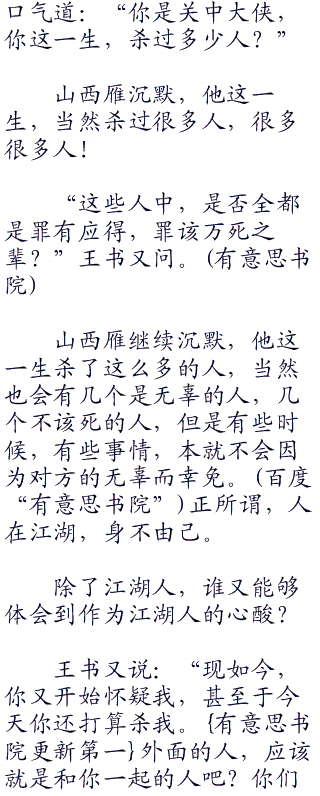 口气道：“你是关中大侠，
你这一生，杀过多少人？”
山西雁沉默，他这一
生，当然杀过很多人，很多
很多人！
“这些人中，是否全都
是罪有应得，罪该万死之
辈？”王书又问。(有意思书
院)
山西雁继续沉默，他这
一生杀了这么多的人，当然
也会有几个是无辜的人，几
个不该死的人，但是有些时
候，有些事情，本就不会因
为对方的无辜而幸免。(百度
“有意思书院”)正所谓，人
在江湖，身不由己。
除了江湖人，谁又能够
体会到作为江湖人的心酸？
王书又说：“现如今，
你又开始怀疑我，甚至于今
天你还打算杀我。{有意思书
院更新第一}外面的人，应该
就是和你一起的人吧？你们